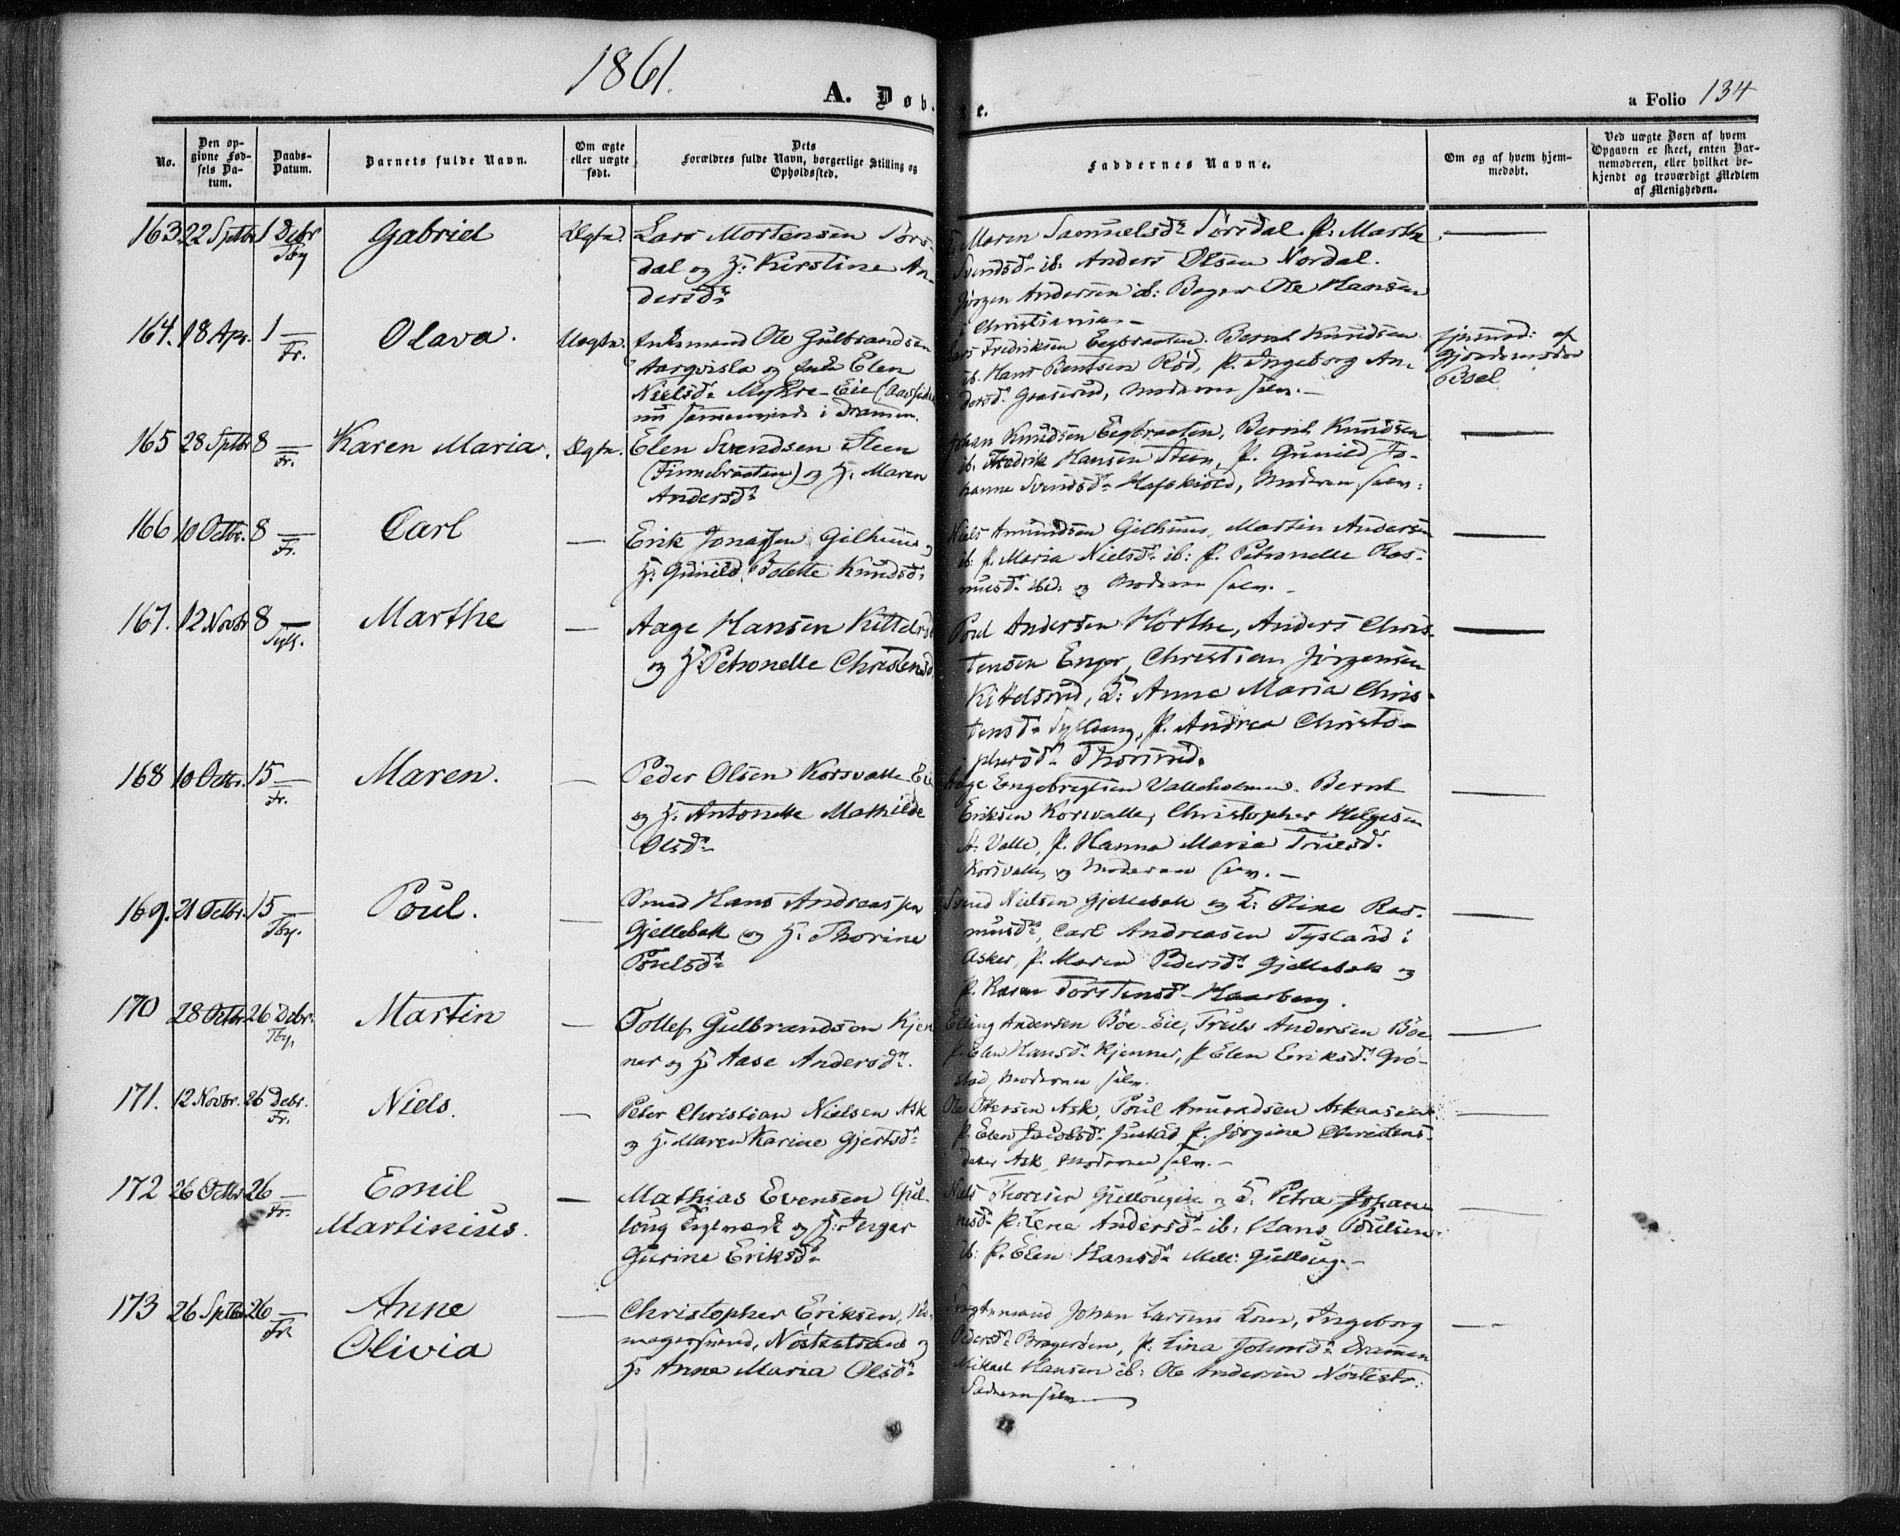 1861.
A. Døb
te.
a Folio 134
No.
Den opgivne Fødsels Datum.
Daabs-Datum.
Barnets fulde Navn.
Om ægte eller uægte født.
Dets Forældres fulde Navn, borgerlige Stilling og Opholdssted.
Faddernes Navne.
Om og af hvem hjemmedøbt.
Ved uægte Børn af hvem Opgaven er skeet, enten Barnemoderen, eller hvilket bekjendt og troværdigt Medlem af Menigheden.
163. 22 Septbr 1 Debr Tby Gabriel Ægte. Lars Mortensen Sørs-
dal og H. Kirstine An-
dersdr
Maren Samuelsdr Sørsdal. P. Marthe
Svendsdr ib. Anders Olsen Nordal.
Jørgen Andersen ib: Bager Ole Hansen
i Christiania.
164. 18 Apr. 1 Fr. Olava. Uægte. Enkemand Ole Gulbrandsen
og Enke Elen
Nielsdr Myhre-Eie
nu i Dramen.
Lars Fredriksen Eegbraaten. Bernt Knudsen
ib. Hans Bentsen Rød, P. Ingeborg An-
dersdr Graserud, Moderen selv.
hjemmed: af
Gjordemoder
Boel
165 28 Septbr 8 Fr. Karen Maria. Ægte. Elen Svendsen Steen
(Finnebraaten) og H. Maren
Andersdr
Johan Knudsen Eegbraaten, Bernt Knudsen
ib. Fredrik Hansen Steen, P. Gunild Jo-
hanne Svendsdr Hafskiold, Moderen selv.
166 10 Octbr. 8 Fr. Carl — Erik Jonassen Gilhuus og
H. Gunild Bolette Knudsdr
Niels Amundsen Gilhuus, Martin Andersen
ib. P. Maria Nielsdr ib: P. Petronelle Ras-
musdr ibd. og Moderen selv.
167. 12 Novbr 8 Syll. Marthe — Aage Hansen Kittelsrud
og H. Petronelle Christensdr
Poul Andersen Hørthe, Anders Chris-
tensen Enger, Christian Jørgensen
Kittelsrud, K: Anne Maria Chris-
tensdr Sylling, P. Andrea Christo-
phersdr Thorsrud.
168 10 Octbr. 15 Fr. Maren. — Peder Olsen Korsvalle Eie
og H. Antonette Mathilde
Olsdr
Aage Engebregtsen Valleholmen. Bernt
Eriksen Korsvalle, Christopher Helgesen
St. Valle, P. Hanna Maria Truesdr
Korsvalle, og Moderen selv.
169. 21 Octbr. 15 Tby. Poul. — Smed Hans Andreassen
Gjellebek og H. Thorine
Poulsdr
Svend Nielsen Gjellebek og K: Oline Ras-
musdr, Carl Andreasen Tysland i
Asker, P. Maren Pedersdr Gjellebek og
P. Karen Torstensdr Haarberg.
170 28 Octbr 26 Debr. Tby. Martin — Tollef Gulbrandsen Kjen-
ner og H. Aase Andersdr.
Elling Andersen Böe-Eie, Truls Andersen Böe
P. Elen Hansdr Kjenner, P. Elen Eriksdr Grö-
stad, Moderen selv.
171. 12 Novbr. 26 Debr. Fr. Niels. — Peter Christian Nielsen Ask
og H. Maren Karine Gjertsdr
Ole Ottersen Ask, Poul Amundsen Askaaseie
P. Elen Jacobsdr Justad, P. Jørgine Christens-
datter Ask, Moderen selv.
172 26 Octbr 26 Fr. Emil
Martinius. — Mathias Evensen Gul-
loug og H. Inger
Gurine Eriksdr
Niels Thoresen Gullougeie og K: Petra Johan-
nesdr P. Lene Andersdr ib: Hans Poulsen
ib: P. Elen Hansdr Mell: Gulloug.
173 26 Septbr 26 Fr. Anne
Olivia — Christopher Eriksen, Sko-
magersvend, Nøstestrand og
H. Anne Maria Olsdr
Johan Larsen, Ingeborg
Pedersdr Bragerøen, P. Lina Johnsdr Dramen
Mikael Hansen ib: Ole Andersen Nøstestr:
Faderen selv.